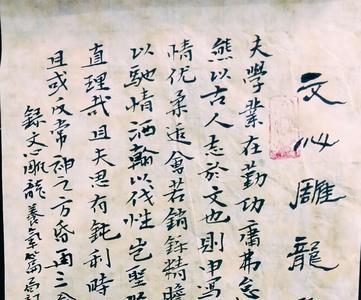 文心雕龍
夫學業在勤功庸弗怠
熊以古人志於文也則申写
情优柔追會若銷鑠精膽
以馳情洒翰以伐性岂聖
直理哉且夫思有鈍利時
且或反常神之方昏再三
錄文心雕龍養氣篇